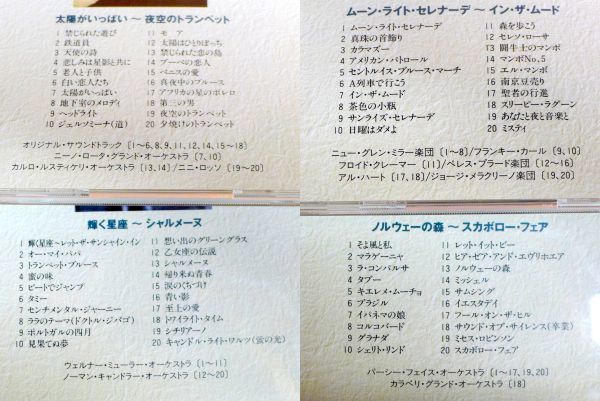 太陽がいっぱい ~ 夜空のトランペット
1 禁じられた遊び
2 鉄道員
3 天使の詩
4 悲しみは星影と共に
5 老人と子供
6 白い恋人たち
7 太陽がいっぱい
8 地下室のメロディ
9 ヘッドライト
10 ジェルソミーナ(道)
11 モア
12 太陽はひとりぼっち
13 禁じられた恋の島
14 ブーベの恋人
15 ベニスの愛
16 真夜中のブルース
17 アフリカの星のボレロ
18 第三の男
19 夜空のトランペット
20 夕焼けのトランペット
オリジナル・サウンドトラック〔1~6,8,9,11,12,14,15~18〕
ニーノ・ロータ・グランド・オーケストラ〔7,10〕
カルロ・ルスティケリ・オーケストラ〔13,14〕/ニニ・ロッソ〔19~20〕
ムーン・ライト・セレナーデ ~ イン・ザ・ムード
1 ムーンライト・セレナーデ
2 真珠の首飾り
3 カラマズー
4 アメリカン・パトロール
5 セントルイス・ブルース・マーチ
6 A列車で行こう
7 イン・ザ・ムード
8 茶色の小瓶
9 サンライズ・セレナーデ
10 日曜はダメよ
11 森を歩こう
12 セレソ・ローサ
13 闘牛士のマンボ
14 マンボNo.5
15 エル・マンボ
16 南京豆売り
17 聖者の行進
18 スリーピー・ラグーン
19 あなたと夜と音楽と
20 ミスティ
ニュー・グレン・ミラー楽団〔1~8〕/フランキー・カール〔9,10〕
フロイド・クレーマー〔11〕/ペレス・プラード楽団〔12~16〕
アル・ハート〔17,18〕/ジョージ・メラクリーノ楽団〔19,20〕
輝く星座 ~ シャルメーヌ
1 輝く星座~レット・ザ・サンシャイン・イン
2 オー・マイ・パパ
3 トランペット・ブルース
4 蜜の味
5 ビートでジャンプ
6 タミー
7 センチメンタル・ジャーニー
8 ララのテーマ(ドクトル・ジバゴ)
9 ポルトガルの四月
10 見果てぬ夢
11 想い出のグリーングラス
12 乙女座の伝説
13 シャルメーヌ
14 帰り来ぬ青春
15 涙のくちづけ
16 青い影
17 至上の愛
18 トワイライト・タイム
19 シチリアーノ
20 キャンドル・ライト・ワルツ(蛍の光)
ウェルナー・ミューラー・オーケストラ〔1~11〕
ノーマン・キャンドラー・オーケストラ〔12~20〕
ノルウェーの森 ~ スカボロー・フェア
1 そよ風と私
2 マラゲーニャ
3 ラ・コンパルサ
4 タブー
5 キエレメ・ムーチョ
6 ブラジル
7 イパネマの娘
8 コルコバード
9 グラナダ
10 シェリト・リンド
11 レット・イット・ビー
12 ヒア・ゼア・アンド・エヴリホエア
13 ノルウェーの森
14 ミッシェル
15 サムシング
16 イエスタデイ
17 フール・オン・ザ・ヒル
18 サウンド・オブ・サイレンス(卒業)
19 ミセス・ロビンソン
20 スカボロー・フェア
パーシー・フェイス・オーケストラ〔1~17,19,20〕
カラベリ・グランド・オーケストラ〔18〕